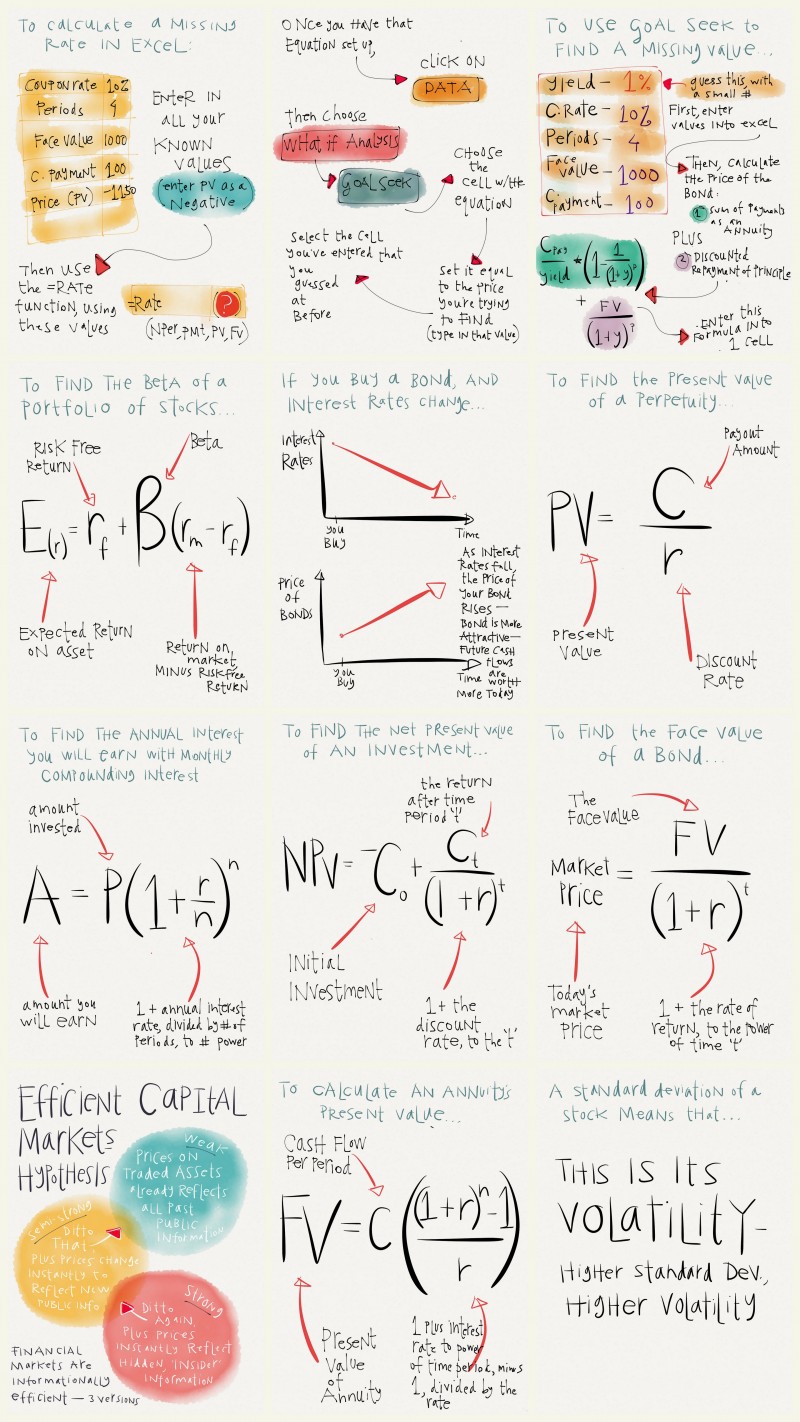 To calculate a Missing
Rate in Excel:
Coupon rate 10%
Periods 4
Face value 1000
C. payment 100
Price (PV) -1150
Enter in
all your
known
values
enter PV as a
Negative
Then use
the =RATE
function, using
these values
=Rate ?
(Nper, pmt, PV, FV)
Once you have that
Equation set up,
click on
DATA
then choose
What if Analysis
Goal Seek
Choose
the
cell w/the
equation
set it equal
to the price
you're trying
to find
(type in that value)
Select the cell
you've entered that
you
guessed
at
Before
To use Goal Seek to
find a missing value...
Yield – 1%
C. Rate – 10%
Periods – 4
Face
value – 1000
C.
payment – 100
guess this with
a small #
First, enter
values into excel
Then, calculate
the Price of the
Bond:
1 sum of Payments
as an
Annuity
PLUS
2 Discounted
Repayment of Principle
C pay
yield * (1 - 1/(1+y)?)
+
FV
(1+y)?
Enter this
Formula into
1 cell
To find the Beta of a
Portfolio of stocks...
Risk Free
Return
Beta
E(r) = rf + B(rm - rf)
Expected Return
on asset
Return on
market
minus Risk free
Return
If you buy a Bond, and
Interest Rates change...
Interest
Rates
you
Buy
Time
Price
of
Bonds
you
Buy
Time
As interest
Rates fall,
the Price of
your Bond
Rises —
Bond is More
Attractive —
Future cash
flows
are
worth
More Today
To find the present value
of a perpetuity...
Payout
Amount
PV = C
r
present
value
Discount
Rate
To find the annual interest
you will earn with monthly
compounding interest
amount
invested
A = P(1 + r/n)^n
amount you
will earn
1 + annual interest
rate, divided by # of
Periods, to # power
To find the net present value
of an investment...
the return
after time
period 't'
NPV = -C₀ + Ct
(1 + r)^t
Initial
Investment
1 + the
discount
rate, to the 't'
To find the face value
of a bond...
The
Face value
Market
Price = FV
(1 + r)^t
Today's
market
Price
1 + the rate of
return, to the power
of time 't'
Efficient Capital
Markets
Hypothesis
Weak
Prices on
Traded Assets
Already Reflects
all past
public
Information
Semi-strong
Ditto
That —
Plus prices change
instantly to
Reflect New
public info
Strong
Ditto
Again,
Plus prices
instantly reflect
Hidden, 'insider'
Information
Financial
Markets are
informationally
efficient — 3 versions
To calculate an annuity's
present value...
Cash Flow
Per period
FV = C((1+r)^n - 1)
r
Present
Value
of
Annuity
1 plus interest
rate to power
of time period, minus
1, divided by the
rate
A standard deviation of a
stock means that...
This is its
Volatility –
Higher Standard Dev.,
Higher Volatility